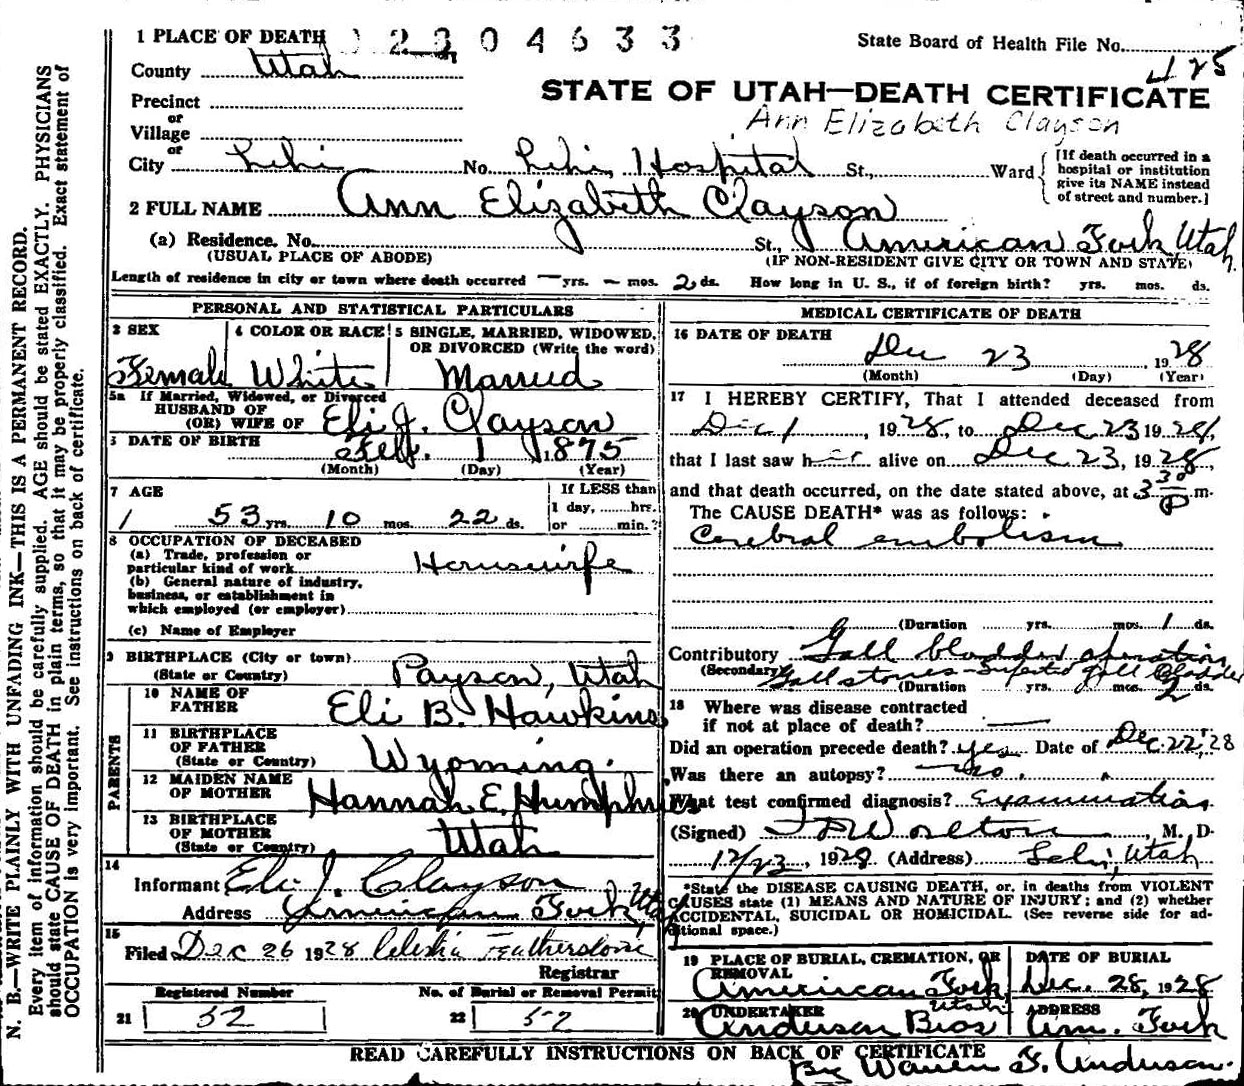 1 PLACE OF DEATH 2304633 State Board of Health File No. 425
County Utah
STATE OF UTAH—DEATH CERTIFICATE
Precinct
or
Village
Ann Elizabeth Clayson
or
City Lehi No. Lehi, Hospital St., Ward
[If death occurred in a
hospital or institution
give its NAME instead
of street and number.]
2 FULL NAME Ann Elizabeth Clayson
(a) Residence. No. St., American Fork, Utah.
(USUAL PLACE OF ABODE) (IF NON-RESIDENT GIVE CITY OR TOWN AND STATE)
Length of residence in city or town where death occurred — yrs. — mos. 2 ds. How long in U. S., if of foreign birth? yrs. mos. ds.
PERSONAL AND STATISTICAL PARTICULARS
3 SEX 4 COLOR OR RACE 5 SINGLE, MARRIED, WIDOWED,
OR DIVORCED (Write the word)
Female White Married
5a If Married, Widowed, or Divorced
HUSBAND OF
(OR) WIFE OF Eli J. Clayson
DATE OF BIRTH Feb. 1 1875
(Month) (Day) (Year)
7 AGE If LESS than
1 day, ......hrs.
53 yrs. 10 mos. 22 ds. or ......min.?
8 OCCUPATION OF DECEASED
(a) Trade, profession or
particular kind of work Housewife
(b) General nature of industry,
business, or establishment in
which employed (or employer)
(c) Name of Employer
9 BIRTHPLACE (City or town)
(State or Country) Payson, Utah
PARENTS
10 NAME OF
FATHER Eli B. Hawkins
11 BIRTHPLACE
OF FATHER
(State or Country) Wyoming.
12 MAIDEN NAME
OF MOTHER Hannah E. Humphries
13 BIRTHPLACE
OF MOTHER
(State or Country) Utah
14
Informant Eli J. Clayson
Address American Fork, Utah
15
Filed Dec 26 1928 Celestia Featherstone
Registrar
Registered Number No. of Burial or Removal Permit
21 52 22 52
MEDICAL CERTIFICATE OF DEATH
16 DATE OF DEATH
Dec 23, 1928
(Month) (Day) (Year)
17 I HEREBY CERTIFY, That I attended deceased from
Dec 1, 1928, to Dec 23 1928,
that I last saw her alive on Dec 23, 1928,
and that death occurred, on the date stated above, at 3 30 P m.
The CAUSE DEATH* was as follows:
Cerebral embolism
(Duration yrs. mos. 1 ds.
Contributory Gall bladder operation
(Secondary) Gall stones - Infected gall bladder
(Duration yrs. mos. 2 ds.
18 Where was disease contracted
if not at place of death? —
Did an operation precede death? yes Date of Dec. 22, '28
Was there an autopsy? no.
What test confirmed diagnosis? examination
(Signed) Worlton, M. D.
12/23, 1928. (Address) Lehi, Utah
*State the DISEASE CAUSING DEATH, or, in deaths from VIOLENT
CAUSES state (1) MEANS AND NATURE OF INJURY; and (2) whether
ACCIDENTAL, SUICIDAL OR HOMICIDAL. (See reverse side for ad-
ditional space.)
19 PLACE OF BURIAL, CREMATION, OR
REMOVAL DATE OF BURIAL
American Fork, Utah. Dec. 28, 1928
20 UNDERTAKER ADDRESS
Anderson Bros Am. Fork
READ CAREFULLY INSTRUCTIONS ON BACK OF CERTIFICATE
By Warren F. Anderson.
N. B.—WRITE PLAINLY WITH UNFADING INK—THIS IS A PERMANENT RECORD.
Every item of information should be carefully supplied. AGE should be stated EXACTLY. PHYSICIANS
should state CAUSE OF DEATH in plain terms, so that it may be properly classified. Exact statement of
OCCUPATION is very important. See instructions on back of certificate.